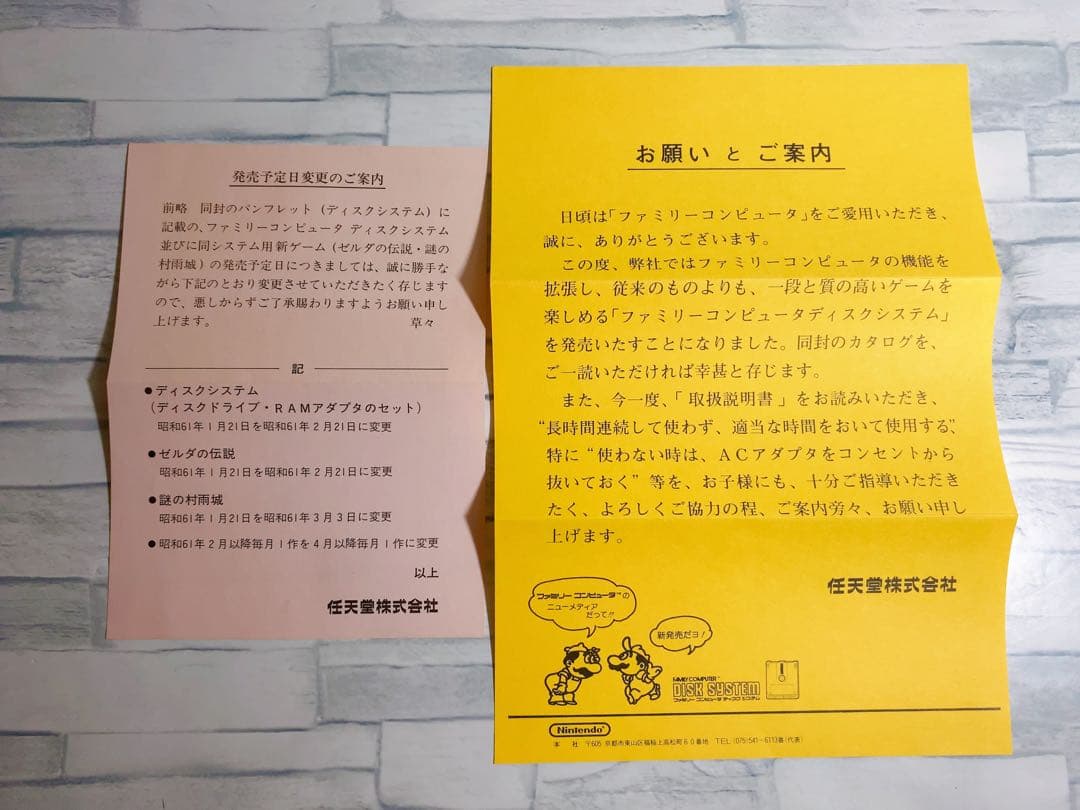 発売予定日変更のご案内
前略　同封のパンフレット（ディスクシステム）に
記載の、ファミリーコンピュータ ディスクシステム
並びに同システム用新ゲーム（ゼルダの伝説・謎の
村雨城）の発売予定日につきましては、誠に勝手な
がら下記のとおり変更させていただきたく存じます
ので、悪しからずご了承賜わりますようお願い申し
上げます。　草々
記
●ディスクシステム
（ディスクドライブ・RAMアダプタのセット）
昭和61年1月21日を昭和61年2月21日に変更
●ゼルダの伝説
昭和61年1月21日を昭和61年2月21日に変更
●謎の村雨城
昭和61年1月21日を昭和61年3月3日に変更
●昭和61年2月以降毎月1作を4月以降毎月1作に変更
以上
任天堂株式会社
お願い と ご案内
日頃は「ファミリーコンピュータ」をご愛用いただき、
誠に、ありがとうございます。
この度、弊社ではファミリーコンピュータの機能を
拡張し、従来のものよりも、一段と質の高いゲームを
楽しめる「ファミリーコンピュータディスクシステム」
を発売いたすことになりました。同封のカタログを、
ご一読いただければ幸甚と存じます。
また、今一度、「取扱説明書」をお読みいただき、
“長時間連続して使わず、適当な時間をおいて使用する”、
特に“使わない時は、ACアダプタをコンセントから
抜いておく”等を、お子様にも、十分ご指導いただき
たく、よろしくご協力の程、ご案内旁々、お願い申し
上げます。
任天堂株式会社
ファミリー コンピュータ™の
ニューメディア
だって!!
新発売だヨ！
FAMILY COMPUTER™
DISK SYSTEM
ファミリー コンピュータ ディスク システム
Nintendo®
本　社　〒605 京都市東山区福稲上高松町60番地　TEL (075)541-6113番(代表)